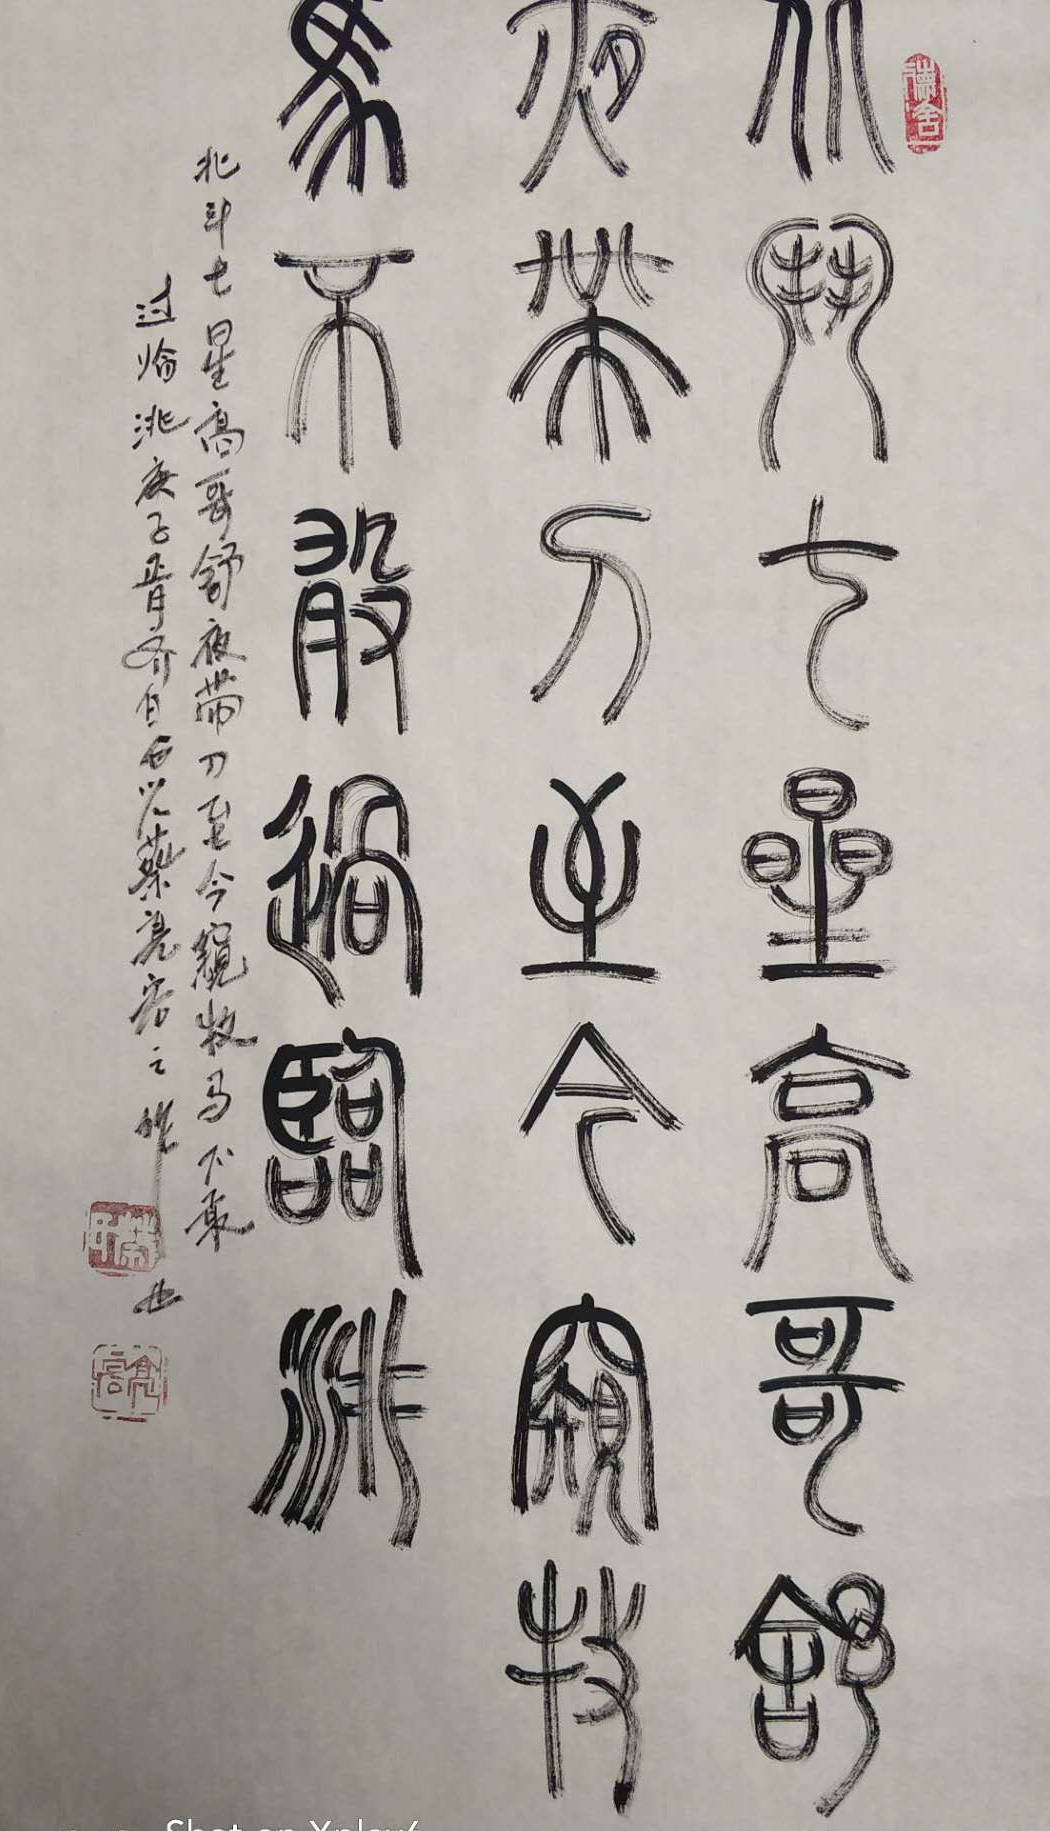 北鬥七星高哥舒
夜帶刀至今窺牧
馬不敢過臨洮
北斗七星高哥舒夜带刀至今窺牧马不敢
过临洮庚子
德舍
Shot on Xplay6